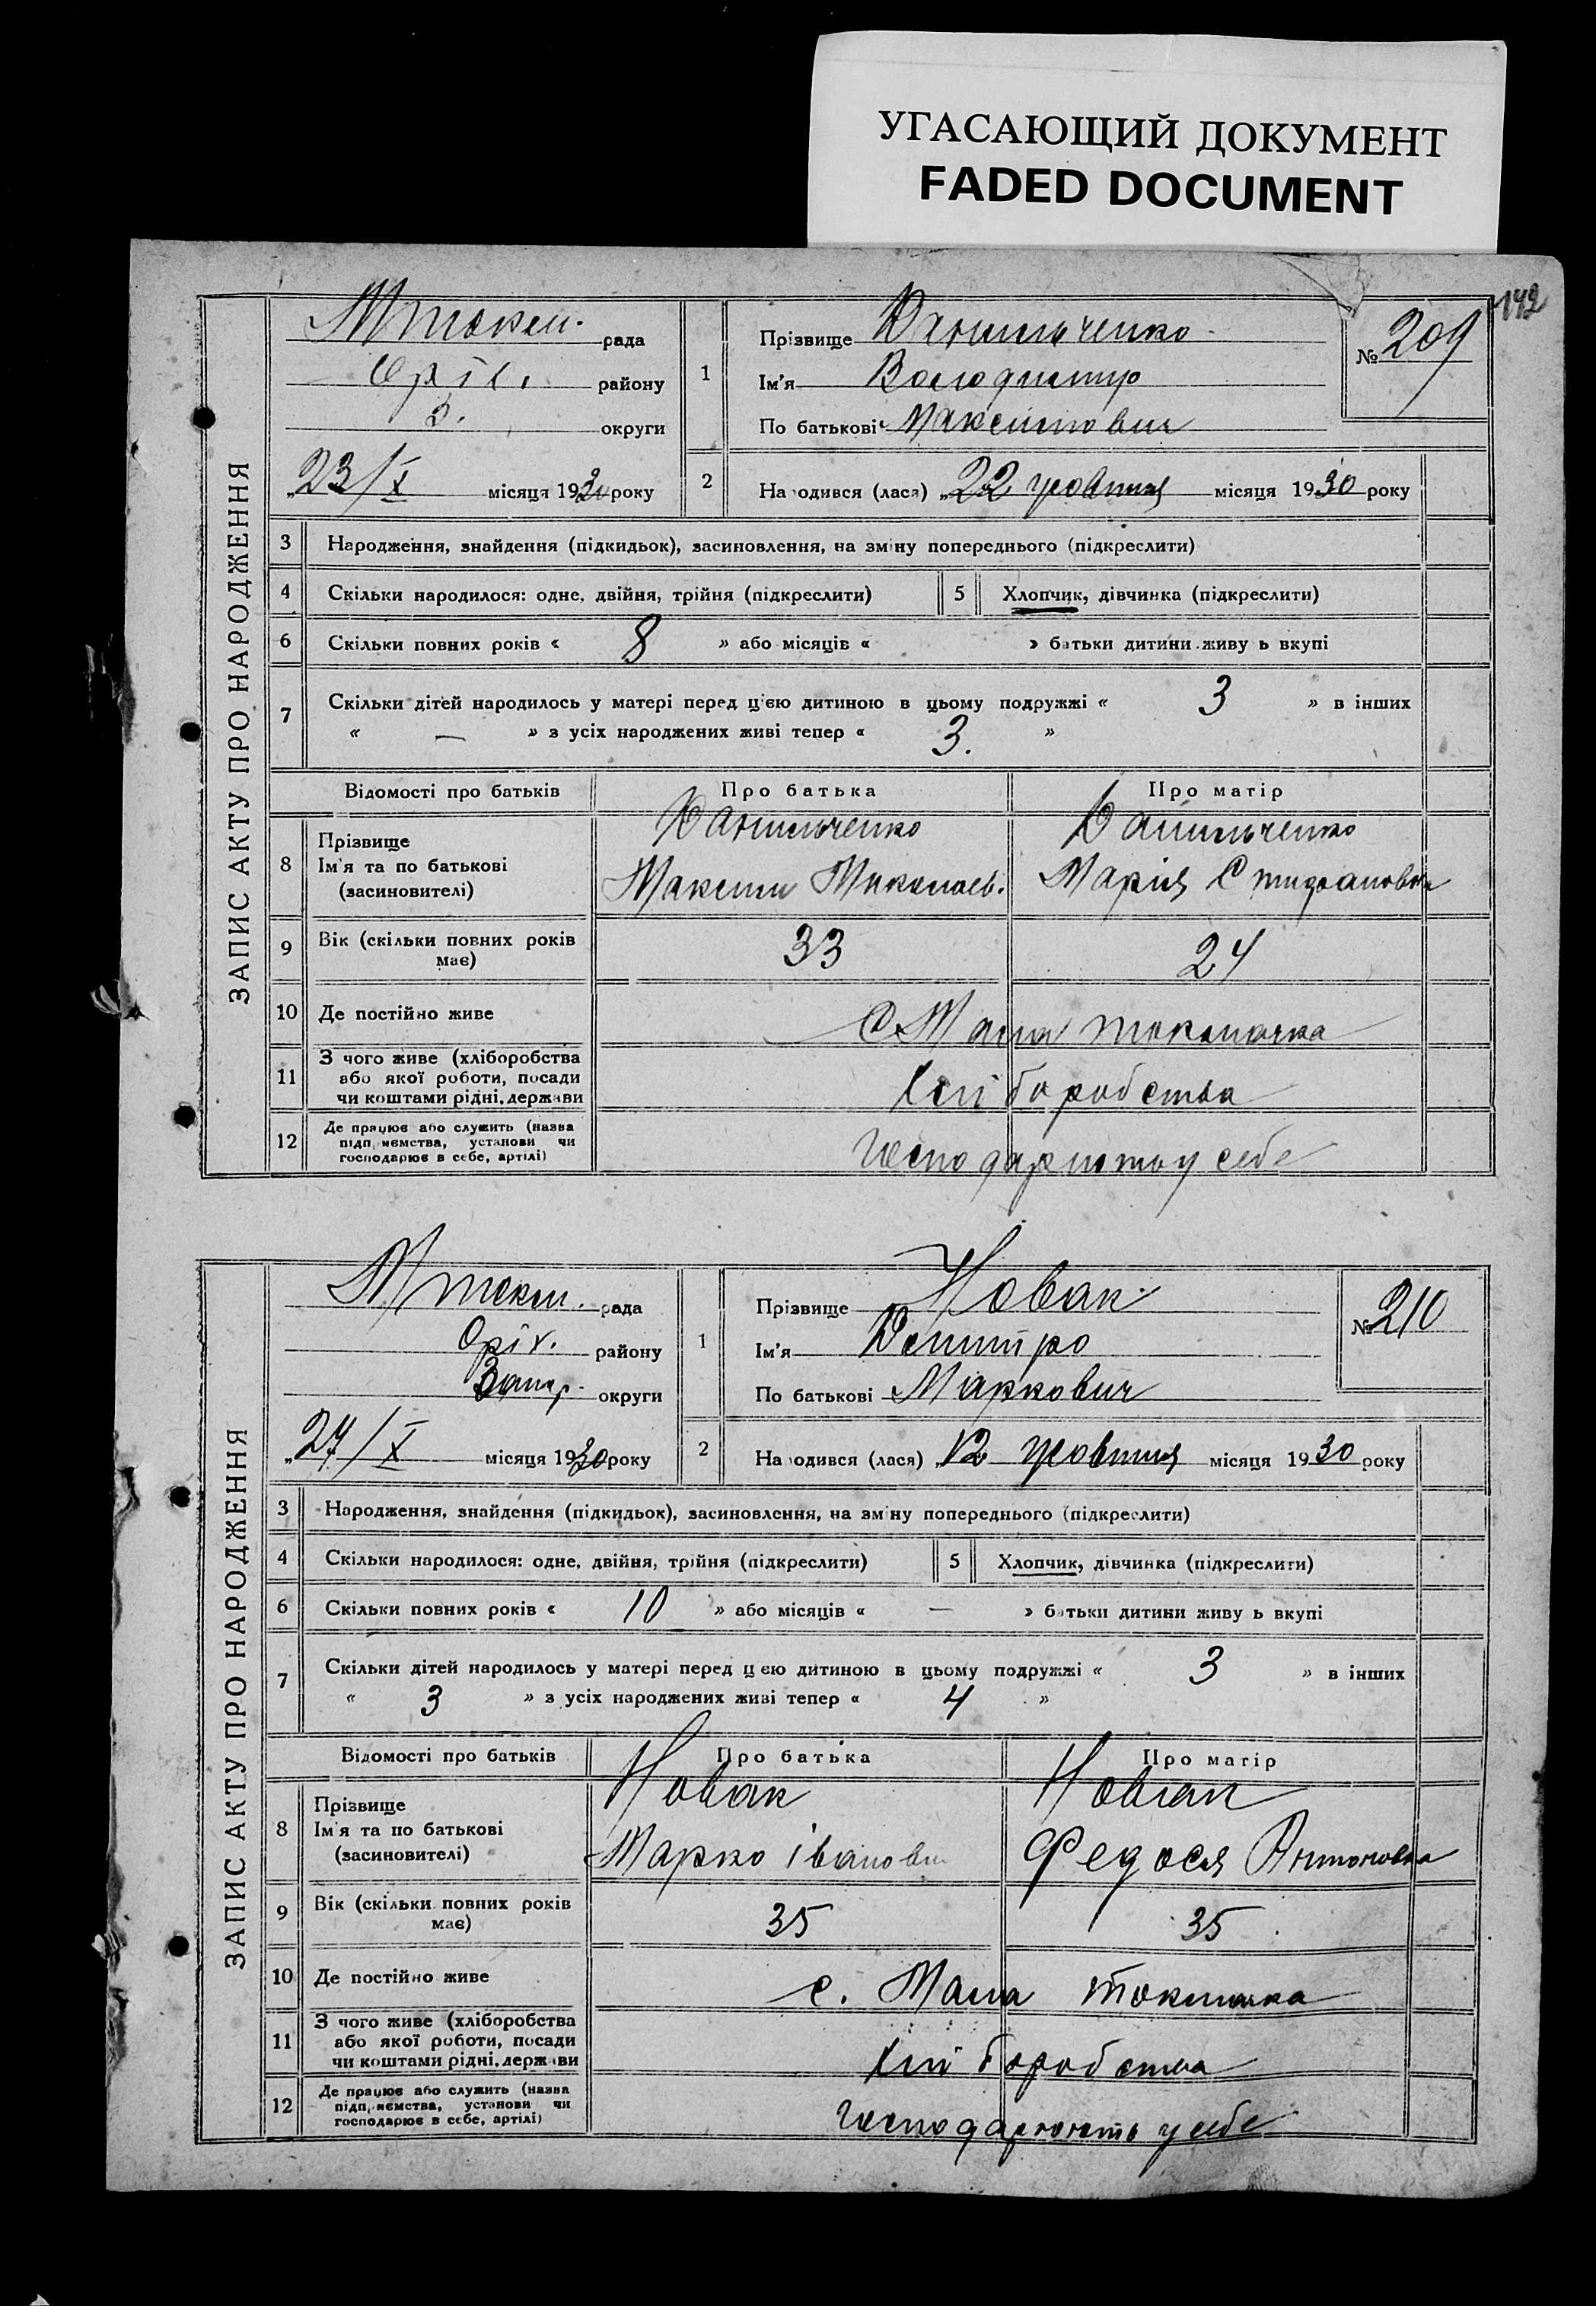 УГАСАЮЩИЙ ДОКУМЕНТ
FADED DOCUMENT
142
ЗАПИС АКТУ ПРО НАРОДЖЕННЯ
Мтокм. рада
Оріх. району
З. округи
„23/X місяця 1930 року
1 Прізвище Данильченко
Ім'я Володимир
По батькові Максимович
№ 209
2 Народився (лася) „22 жовтня місяця 1930 року
3 Народження, знайдення (підкидьок), засиновлення, на зміну попереднього (підкреслити)
4 Скільки народилося: одне, двійня, трійня (підкреслити) 5 Хлопчик, дівчинка (підкреслити)
6 Скільки повних років « 8 » або місяців « » батьки дитини живуть вкупі
7 Скільки дітей народилось у матері перед цією дитиною в цьому подружжі « 3 » в інших
« — » з усіх народжених живі тепер « 3. »
Відомості про батьків Про батька Про матір
8 Прізвище Данильченко Данильченко
Ім'я та по батькові Максим Миколаєв. Марія
(засиновителі)
9 Вік (скільки повних років має) 33 24
10 Де постійно живе С Мала Токмачка
11 З чого живе (хліборобства
або якої роботи, посади
чи коштами рідні, держави Хліборобства
12 Де працює або служить (назва
підприємства, установи чи
господарює в себе, артілі) у себе
ЗАПИС АКТУ ПРО НАРОДЖЕННЯ
Мтокм. рада
Оріх. району
Запор. округи
„27/X місяця 1930 року
1 Прізвище Новак
Ім'я Дмитро
По батькові Маркович
№ 210
2 Народився (лася) „12 жовтня місяця 1930 року
3 Народження, знайдення (підкидьок), засиновлення, на зміну попереднього (підкреслити)
4 Скільки народилося: одне, двійня, трійня (підкреслити) 5 Хлопчик, дівчинка (підкреслити)
6 Скільки повних років « 10 » або місяців « — » батьки дитини живуть вкупі
7 Скільки дітей народилось у матері перед цією дитиною в цьому подружжі « 3 » в інших
« 3 » з усіх народжених живі тепер « 4 »
Відомості про батьків Про батька Про матір
8 Прізвище Новак Новак
Ім'я та по батькові Марко Іванович Федося Антоновна
(засиновителі)
9 Вік (скільки повних років має) 35 35
10 Де постійно живе с. Мала Токмачка
11 З чого живе (хліборобства
або якої роботи, посади
чи коштами рідні, держави Хліборобства
12 Де працює або служить (назва
підприємства, установи чи
господарює в себе, артілі) Господарюють у себе